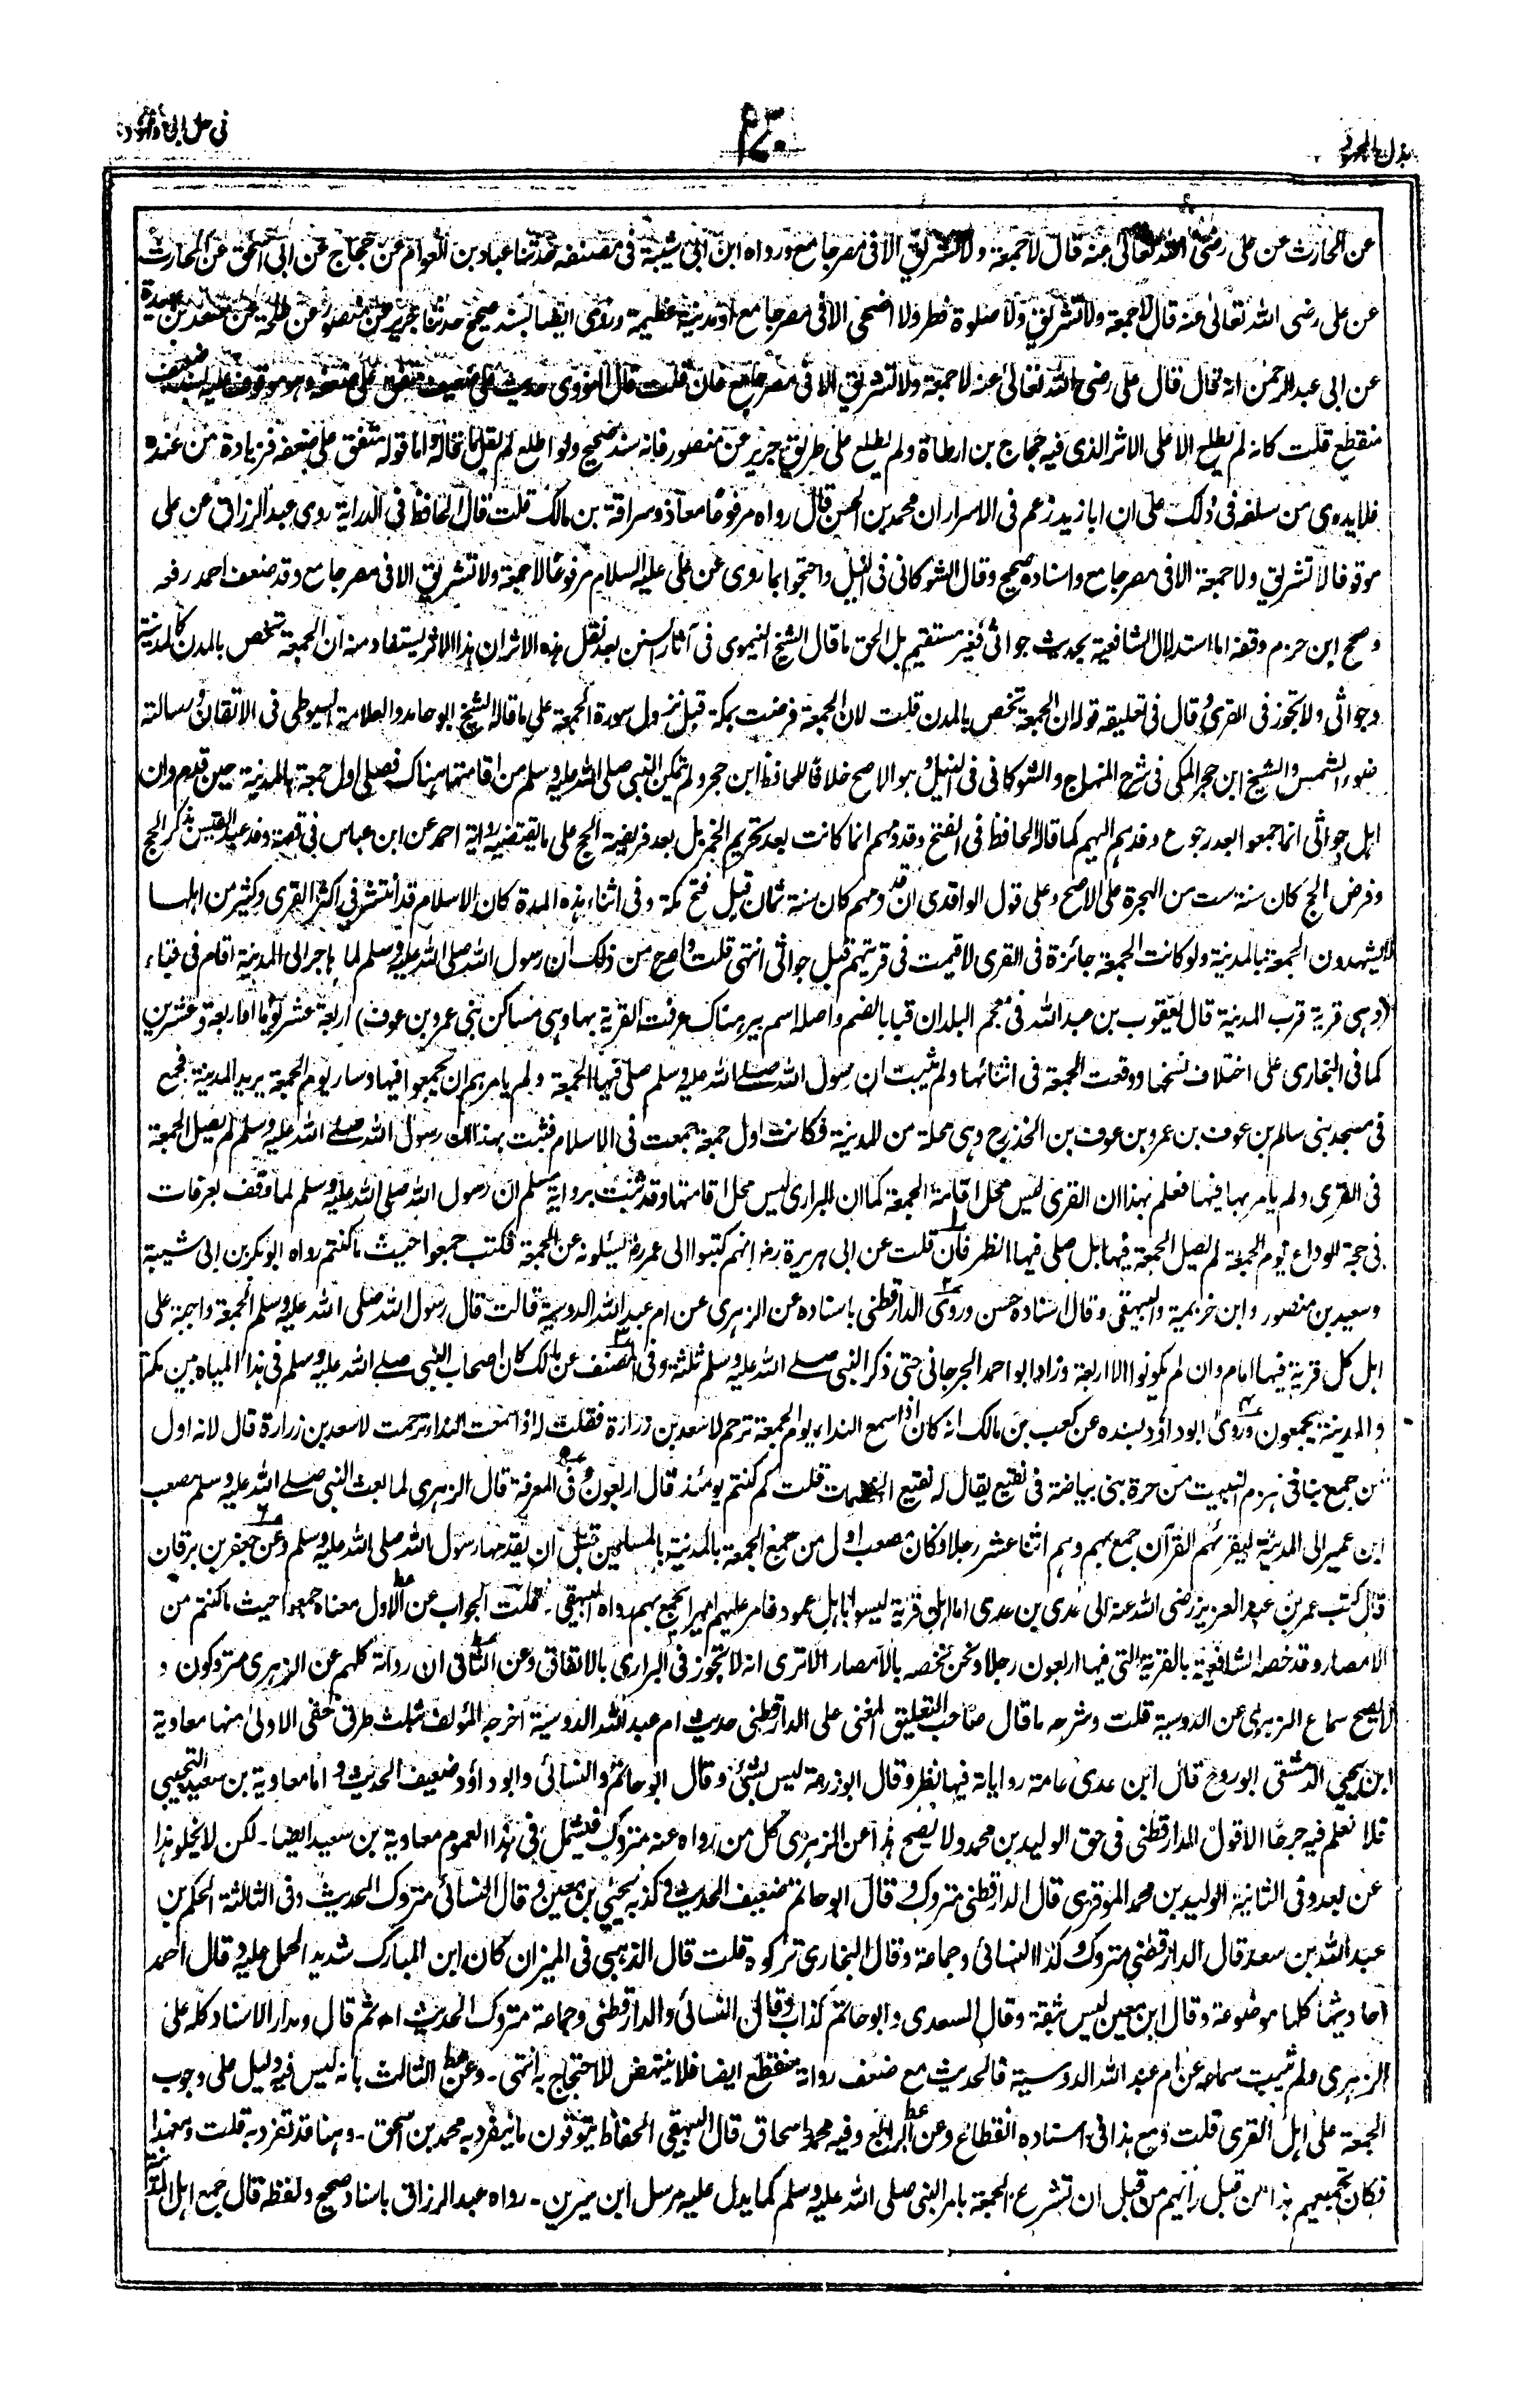 بذل المجهود
في حل ابي داؤد
عن الحارث عن على رضى الله تعالى عنه قال لا جمعة ولا تشريق الا فى مصر جامع ورواه ابن ابى شيبة فى مصنفه حدثنا عباد بن العوام عن حجاج عن ابى اسحق عن الحارث
عن على رضى الله تعالى عنه قال لا جمعة ولا تشريق ولا صلوة فطر ولا اضحى الا فى مصر جامع او مدينة عظيمة وروى ايضا بسند صحيح حدثنا جرير عن منصور عن طلحة عن سعد بن عبيدة
عن ابى عبد الرحمن انه قال قال على رضى الله تعالى عنه لا جمعة ولا تشريق الا فى مصر جامع فان قلت قال النووى حديث على ضعيف متفق على ضعفه وهو موقوف عليه بسند ضعيف
منقطع قلت كانه لم يطلع الا على الاثر الذى فيه حجاج بن ارطاة ولم يطلع على طريق جرير عن منصور فانه سند صحيح ولو اطلع لم يقل بما قاله واما قوله متفق على ضعفه فزيادة من عنده
فلا يدرى من سلفه فى ذلك على ان ابا زيد زعم فى الاسرار ان محمد بن الحسن قال رواه مرفوعا معاذ وسراقة بن مالك قلت قال الحافظ فى الدراية روى عبد الرزاق عن على
موقوفا لا تشريق ولا جمعة الا فى مصر جامع واسناده صحيح وقال الشوكانى فى النيل واحتجوا بما روى عن على عليه السلام مرفوعا لا جمعة ولا تشريق الا فى مصر جامع وقد ضعف احمد رفعه
وصحح ابن حزم وقفه اما استدلال الشافعية بحديث جواثى فغير مستقيم بل الحق ما قال الشيخ النيموى فى آثار السنن بعد نقل هذه الاثر ان هذا الاثر يستفاد منه ان الجمعة تختص بالمدن كالمدينة
وجواثى ولا تجوز فى القرى وقال فى تعليقه قوله ان الجمعة تختص بالمدن قلت لان الجمعة فرضت بمكة قبل نزول سورة الجمعة على ما قاله الشيخ ابو حامد والعلامة السيوطى فى الاتقان ورسالته
ضوء الشمس والشيخ ابن حجر المكى فى شرح المنهاج والشوكانى فى النيل وهو الاصح خلافا للحافظ ابن حجر ولم يتمكن النبى صلى الله عليه وسلم من اقامتها هناك فصلى اول جمعة بالمدينة حين قدم وان
اهل جواثى انما جمعوا بعد رجوع وفدهم اليهم كما قاله الحافظ فى الفتح وقدومهم انما كانت بعد تحريم الخمر بل بعد فرضية الحج على ما يقتضيه رواية احمد عن ابن عباس فى قصة وفد عبد القيس بذكر الحج
وفرض الحج كان سنة ست من الهجرة على الاصح وعلى قول الواقدى ان قدومهم كان سنة ثمان قبل فتح مكة وفى اثناء هذه المدة كان الاسلام قد انتشر فى اكثر القرى وكثير من اهلها
لا يشهدون الجمعة بالمدينة ولو كانت الجمعة جائزة فى القرى لاقيمت فى قريتهم قبل جواثى انتهى قلت واصرح من ذلك ان رسول الله صلى الله عليه وسلم لما هاجر الى المدينة اقام فى قباء
(وهى قرية قرب المدينة قال يعقوب بن عبد الله فى معجم البلدان قبا بالضم واصله اسم بير هناك عرفت القرية بها وهى مساكن بنى عمرو بن عوف) اربعة عشر يوما او اربعة وعشرين
كما فى البخارى على اختلاف نسخها ووقعت الجمعة فى اثنائها ولم يثبت ان رسول الله صلى الله عليه وسلم صلى فيها الجمعة ولم يامرهم ان يجمعوا فيها وسار يوم الجمعة يريد المدينة فجمع
فى مسجد بنى سالم بن عوف بن عمرو بن عوف بن الخزرج وهى محلة من المدينة فكانت اول جمعة جمعت فى الاسلام فثبت بهذا ان رسول الله صلى الله عليه وسلم لم يصل الجمعة
فى القرى ولم يامر بها فيها فعلم بهذا ان القرى ليس محل اقامة الجمعة كما ان البرارى ليس محل اقامتها وقد ثبت برواية مسلم ان رسول الله صلى الله عليه وسلم لما وقف بعرفات
فى حجة الوداع يوم الجمعة لم يصل الجمعة فيها بل صلى فيها الظهر فان قلت عن ابى هريرة رضـ انهم كتبوا الى عمر رضـ يسئلونه عن الجمعة فكتب جمعوا حيث ما كنتم رواه ابو بكر بن ابى شيبة
وسعيد بن منصور وابن خزيمة والبيهقى وقال اسناده حسن وروى الدارقطنى باسناده عن الزهرى عن ام عبد الله الدوسية قالت قال رسول الله صلى الله عليه وسلم الجمعة واجبة على
اهل كل قرية فيها امام وان لم يكونوا الا اربعة وزاد ابو احمد الجرجانى حتى ذكر النبى صلى الله عليه وسلم ثلثة وفى المصنف عن مالك كان اصحاب النبى صلى الله عليه وسلم فى هذا المياه بين مكة
والمدينة يجمعون وروى ابو داؤد بسنده عن كعب بن مالك انه كان اذا سمع النداء يوم الجمعة ترحم لاسعد بن زرارة فقلت له اذا سمعت النداء ترحمت لاسعد بن زرارة قال لانه اول
من جمع بنا فى هزم النبيت من حرة بنى بياضة فى نقيع يقال له نقيع الخضمات قلت كم كنتم يومئذ قال اربعون وفى المعرفة قال الزهرى لما بعث النبى صلى الله عليه وسلم مصعب
ابن عمير الى المدينة ليقرئهم القرآن جمع بهم وهم اثنا عشر رجلا وكان مصعب اول من جمع الجمعة بالمدينة بالمسلمين قبل ان يقدمها رسول الله صلى الله عليه وسلم وعن جعفر بن برقان
قال كتب عمر بن عبد العزيز رضى الله عنه الى عدى بن عدى اما اهل قرية ليسوا باهل عمود فامر عليهم اميرا يجمع بهم رواه البيهقى ۔ قلت الجواب عن الاول معناه جمعوا حيث ما كنتم من
الامصار وقد خصه الشافعية بالقرية التى فيها اربعون رجلا ونحن نخصه بالامصار الا ترى انه لا تجوز فى البرارى بالاتفاق وعن الثانى ان رواته كلهم عن الزهرى متروكون و
لا يصح سماع الزهرى عن الدوسية قلت وشرحه ما قال صاحب التعليق المغنى على الدارقطنى حديث ام عبد الله الدوسية اخرجه المؤلف بثلث طرق ففى الاولى منها معاوية
ابن يحيى الدمشقى ابو روح قال ابن عدى عامة رواياته فيها نظر وقال ابو زرعة ليس بشئ وقال ابو حاتم والنسائى وابو داؤد ضعيف الحديث واما معاوية بن سعيد التجيبى
فلا نعلم فيه جرحا الا قول الدارقطنى فى حق الوليد بن محمد ولا يصح هذا عن الزهرى كل من رواه عنه متروك فيشمل فى هذا العموم معاوية بن سعيد ايضا ۔ لكن لا يخلو هذا
عن بعد وفى الثانية الوليد بن محمد الموقرى قال الدارقطنى متروك وقال ابو حاتم ضعيف الحديث وكذبه يحيى بن معين وقال النسائى متروك الحديث وفى الثالثة الحكم بن
عبد الله بن سعد قال الدارقطنى متروك وكذا النسائى وجماعة وقال البخارى تركوه قلت قال الذهبى فى الميزان كان ابن المبارك شديد الحمل عليه وقال احمد
احاديثها كلها موضوعة وقال ابن معين ليس بثقة وقال السعدى وابو حاتم كذاب وقال النسائى والدارقطنى وجماعة متروك الحديث اه ثم قال ومدار الاسناد كله على
الزهرى ولم يثبت سماعه عن ام عبد الله الدوسية فالحديث مع ضعف رواته منقطع ايضا فلا ينتهض للاحتجاج به انتهى ۔ وعن الثالث بانه ليس فيه دليل على وجوب
الجمعة على اهل القرى قلت ومع هذا فى اسناده انقطاع وعن الرابع وفيه محمد اسحاق قال البيهقى الحفاظ يتوقون ما ينفرد به محمد بن اسحق ۔ وهنا قد تفرد به قلت ومع هذا
فكان تجميعهم هذا من قبل رائهم من قبل ان تشرع الجمعة بامر النبى صلى الله عليه وسلم كما يدل عليه مرسل ابن سيرين ۔ رواه عبد الرزاق باسناد صحيح ولفظه قال جمع اهل المدينة